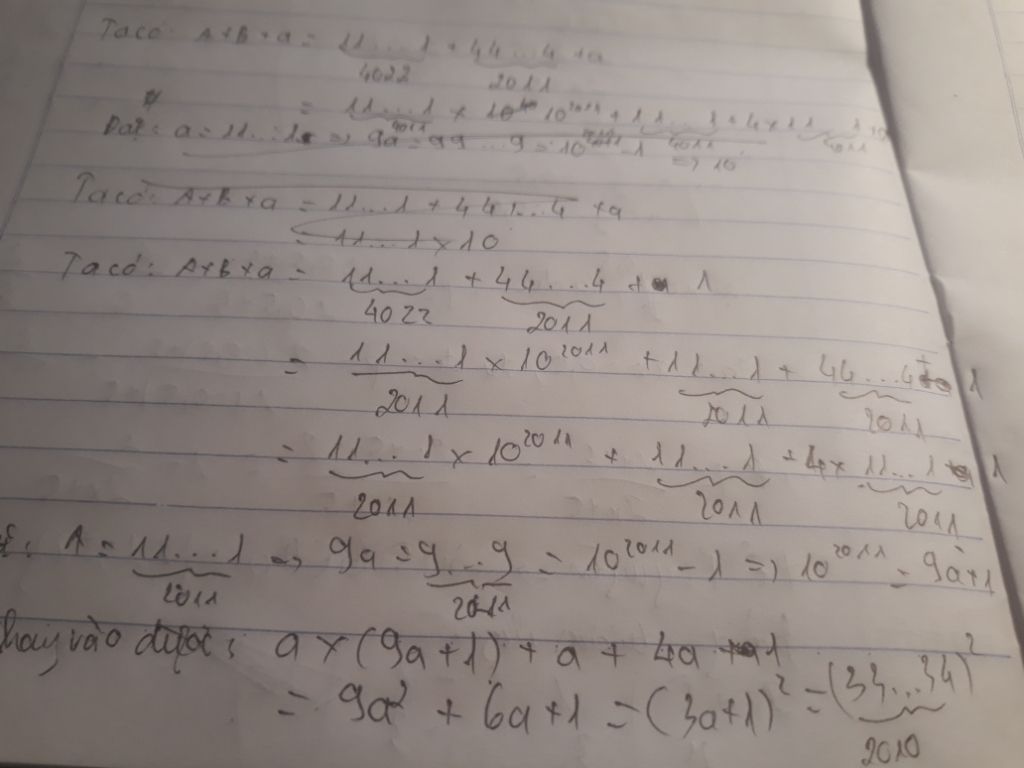 Ta có: A+B+a = 11...1 + 44...4 + a
4022 2011
= 11...1 × 10 10^2011 + 11...1 + 4×11
Đặt: a = 11...1 ⇒ 9a = 99...9 = 10^2011 - 1 ⇒ 10
Ta có: A+B+a = 11...1 + 44...4 + a
= 11...1×10
Ta có: A+B+a = 11...1 + 44...4 + 1
4022 2011
= 11...1 × 10^2011 + 11...1 + 44...4 + 1
2011 2011 2011
= 11...1 × 10^2011 + 11...1 + 4× 11...1 1
2011 2011 2011
A = 11...1 ⇒ 9a = 9...9 = 10^2011 - 1 ⇒ 10^2011 = 9a+1
2011 2011
hay vào được: a × (9a+1) + a + 4a + 1
= 9a² + 6a + 1 = (3a+1)² = (33...34)²
2010